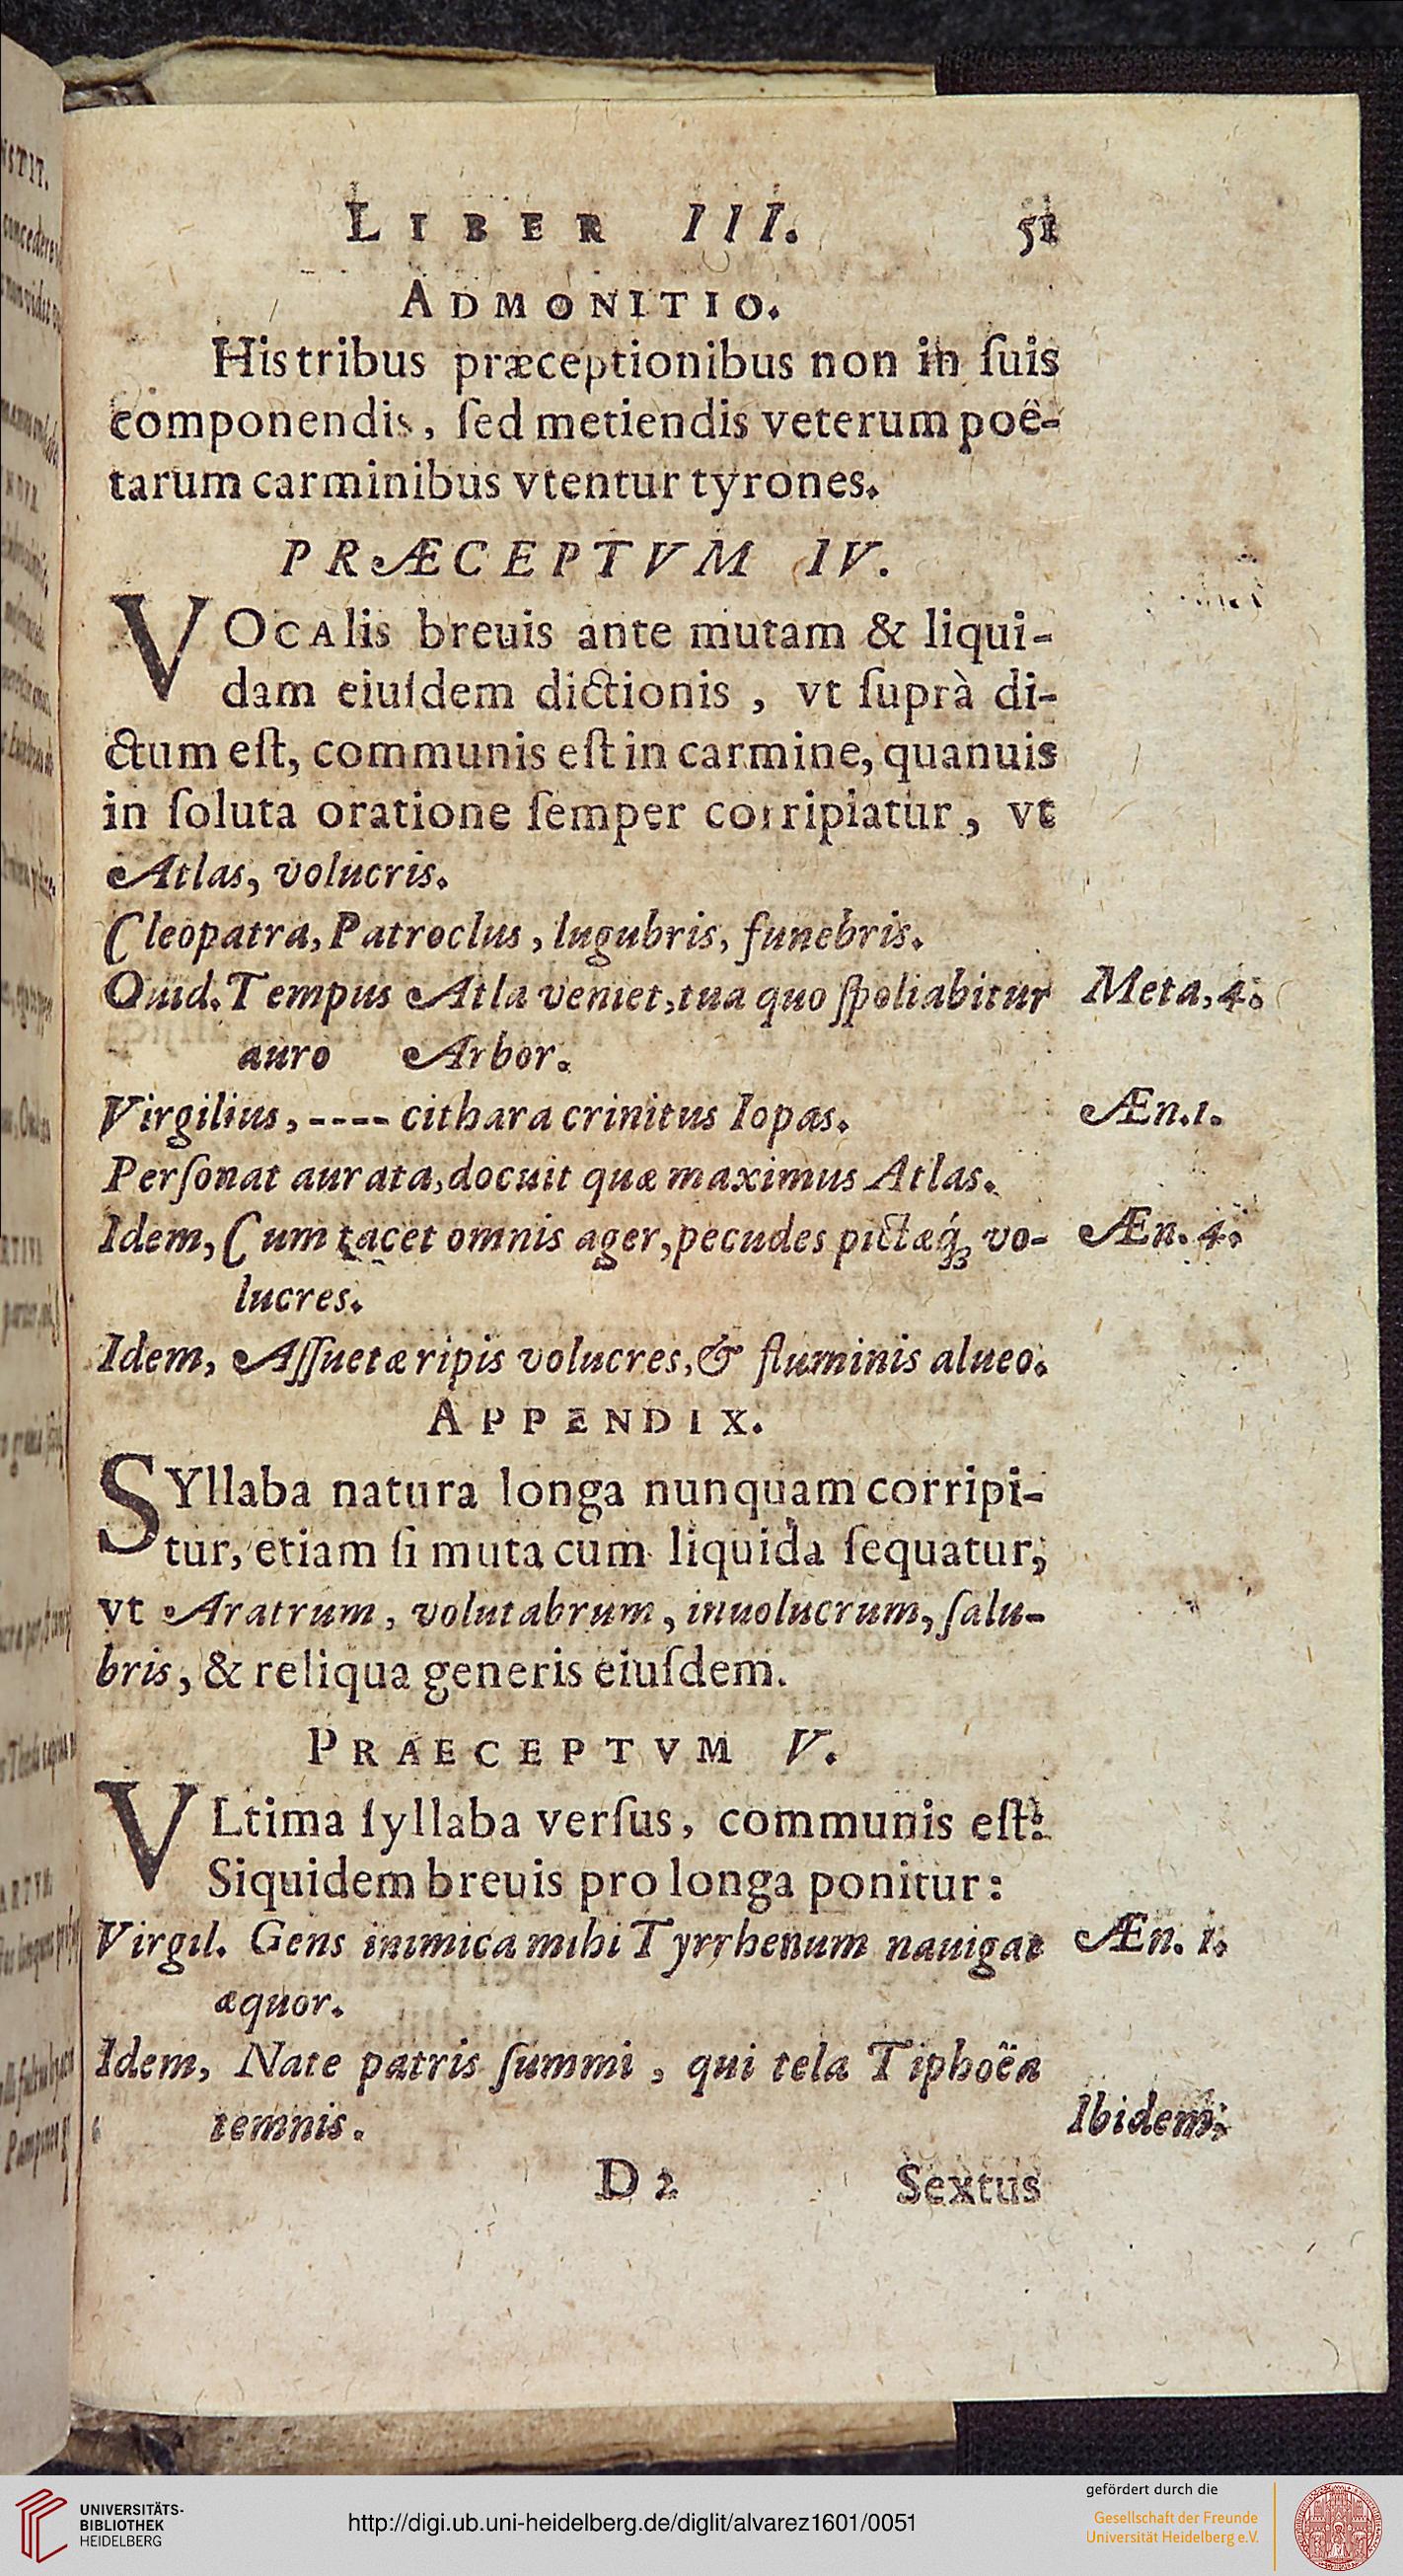 LIBER III. 51
ADMONITIO.
His tribus præceptionibus non in ſuis
componendis, ſed metiendis veterum poë-
tarum carminibus vtentur tyrones.
PRÆCEPTVM IV.
VOCAlis breuis ante mutam & liqui-
dam eiuſdem dictionis, vt ſuprà di-
ctum eſt, communis eſt in carmine, quanuis
in ſoluta oratione ſemper corripiatur, vt
Atlas, volucris.
Cleopatra, Patroclus, lugubris, funebris.
Ouid. Tempus Atla veniet, tua quo ſpoliabitur Meta. 4.
auro Arbor.
Virgilius, ---- cithara crinitus Iopas. Æn. 1.
Perſonat aurata, docuit quæ maximus Atlas.
Idem, Cum tacet omnis ager, pecudes pictæq́; vo- Æn. 4.
lucres.
Idem, Aſſuetæ ripis volucres, & fluminis alueo.
APPENDIX.
SYllaba natura longa nunquam corripi-
tur, etiam ſi muta cum liquida ſequatur,
vt Aratrum, volutabrum, inuolucrum, ſalu-
bris, & reliqua generis eiuſdem.
PRAECEPTVM V.
VLtima ſyllaba verſus, communis eſt:
Siquidem breuis pro longa ponitur:
Virgil. Gens inimica mihi Tyrrhenum nauigat Æn. 1.
æquor.
Idem, Nate patris ſummi, qui tela Tiphoëa
temnis. Ibidem.
D 2 Sextus
UNIVERSITÄTS-
BIBLIOTHEK
HEIDELBERG
http://digi.ub.uni-heidelberg.de/diglit/alvarez1601/0051
gefördert durch die
Gesellschaft der Freunde
Universität Heidelberg e.V.